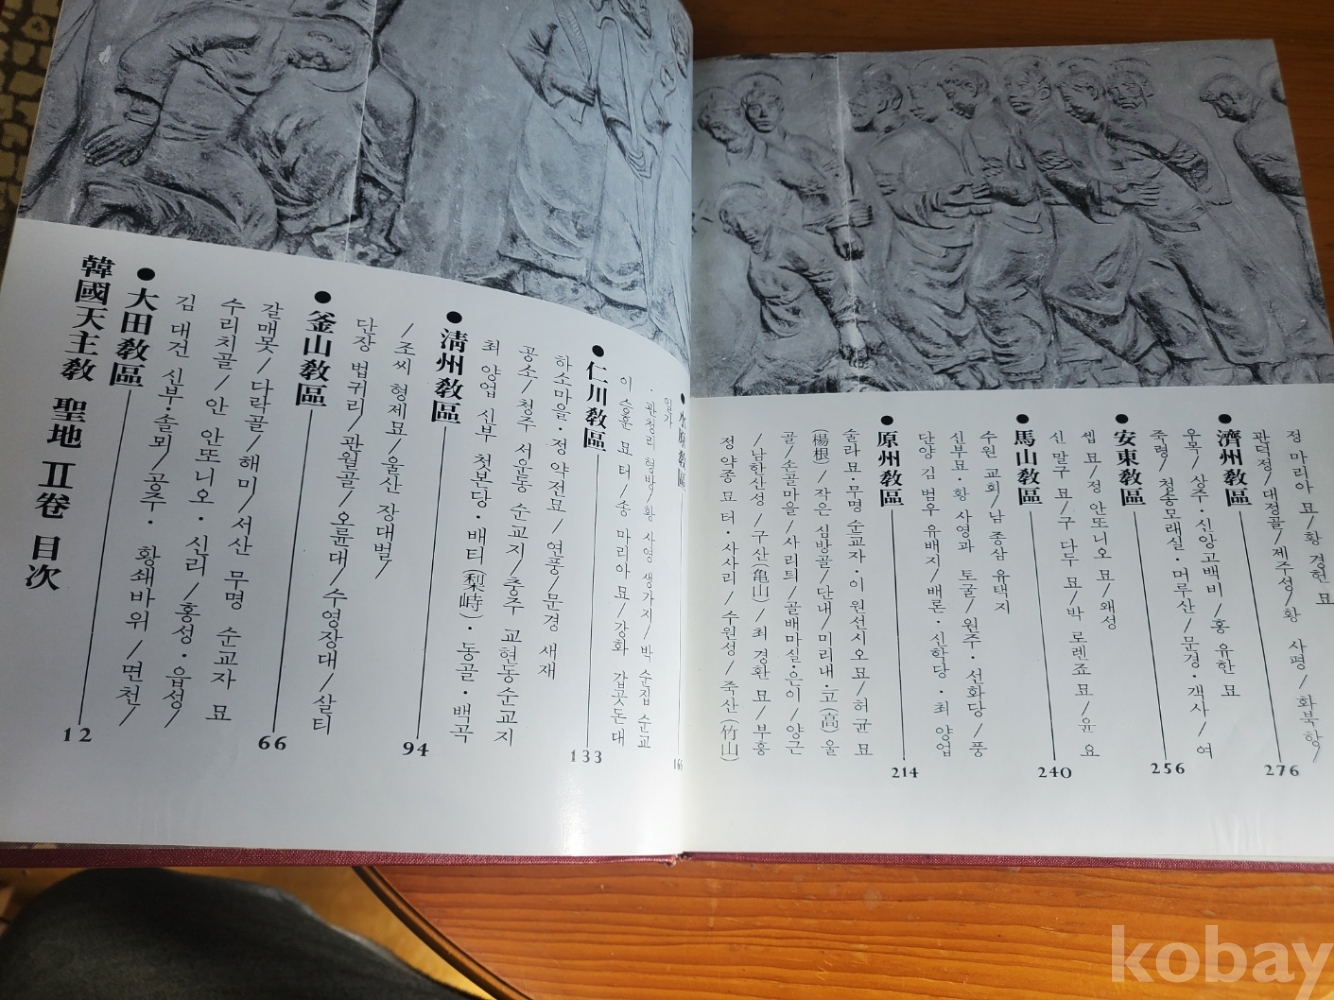 韓國天主敎 聖地 Ⅱ卷 目次
●大田敎區 12
김 대건 신부·솔뫼/공주· 황쇄바위/면천/
수리치골/안 안또니오·신리/홍성·읍성/
갈매못/다락골/해미/서산 무명 순교자 묘
●釜山敎區 66
단장 법귀리/관월골/오륜대/수영장대/살티
/조씨 형제묘/울산 장대벌/
●淸州敎區 94
최 양업 신부 첫본당·배티(梨峙)·동골·백곡
공소/청주 서운동 순교지/충주 교현동순교지
하소마을·정 약전묘/연풍/문경 새재
●仁川敎區 133
이 승훈 묘 터/송 마리아 묘/강화 갑곳돈대
·관청리 형방/황 사영 생가지/박 순집 순교
일가
敎區 166
정 약종 묘 터·사사리/수원성/죽산(竹山)
/남한산성/구산(亀山)/최 경환 묘/부흥
골/손골마을/사리틔/골배마실·은이/양근
(楊根)/작은 심방골/단내/미리내·고(高)울
술라묘·무명 순교자·이 원선시오묘/허균 묘
●原州敎區 214
단양 김 범우 유배지/배론·신학당·최 양업
신부묘·황 사영과 토굴/원주·선화당/풍
수원 교회/남 종삼 유택지
●馬山敎區 240
신 말구 묘/구 다두 묘/박 로렌죠 묘/윤 요
셉 묘/정 안또니오 묘/왜성
●安東敎區 256
죽령/청송모래실·머루산/문경·객사/여
우목/상주·신앙고백비/홍 유한 묘
●濟州敎區 276
관덕정/대정골/제주성/황 사평/화북항/
정 마리아 묘/황 경헌 묘
kobay